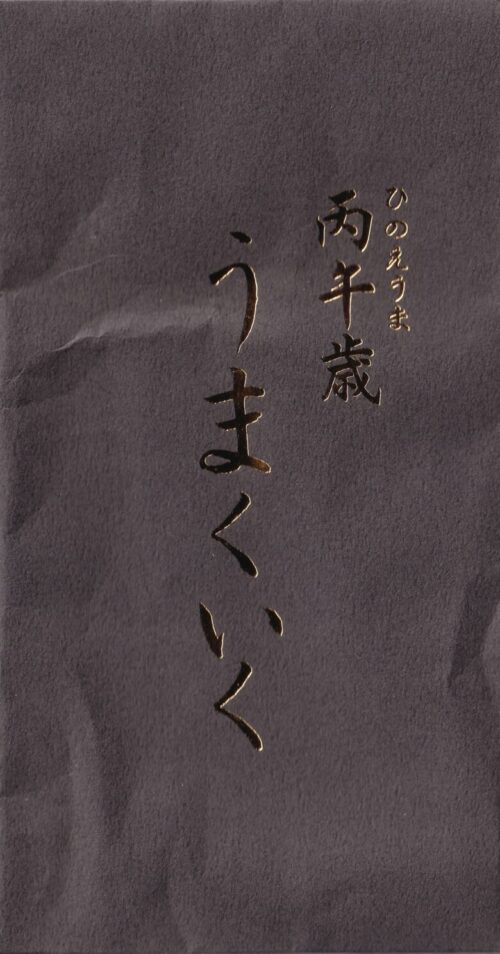 ひのえうま
丙午歳
うまくいく